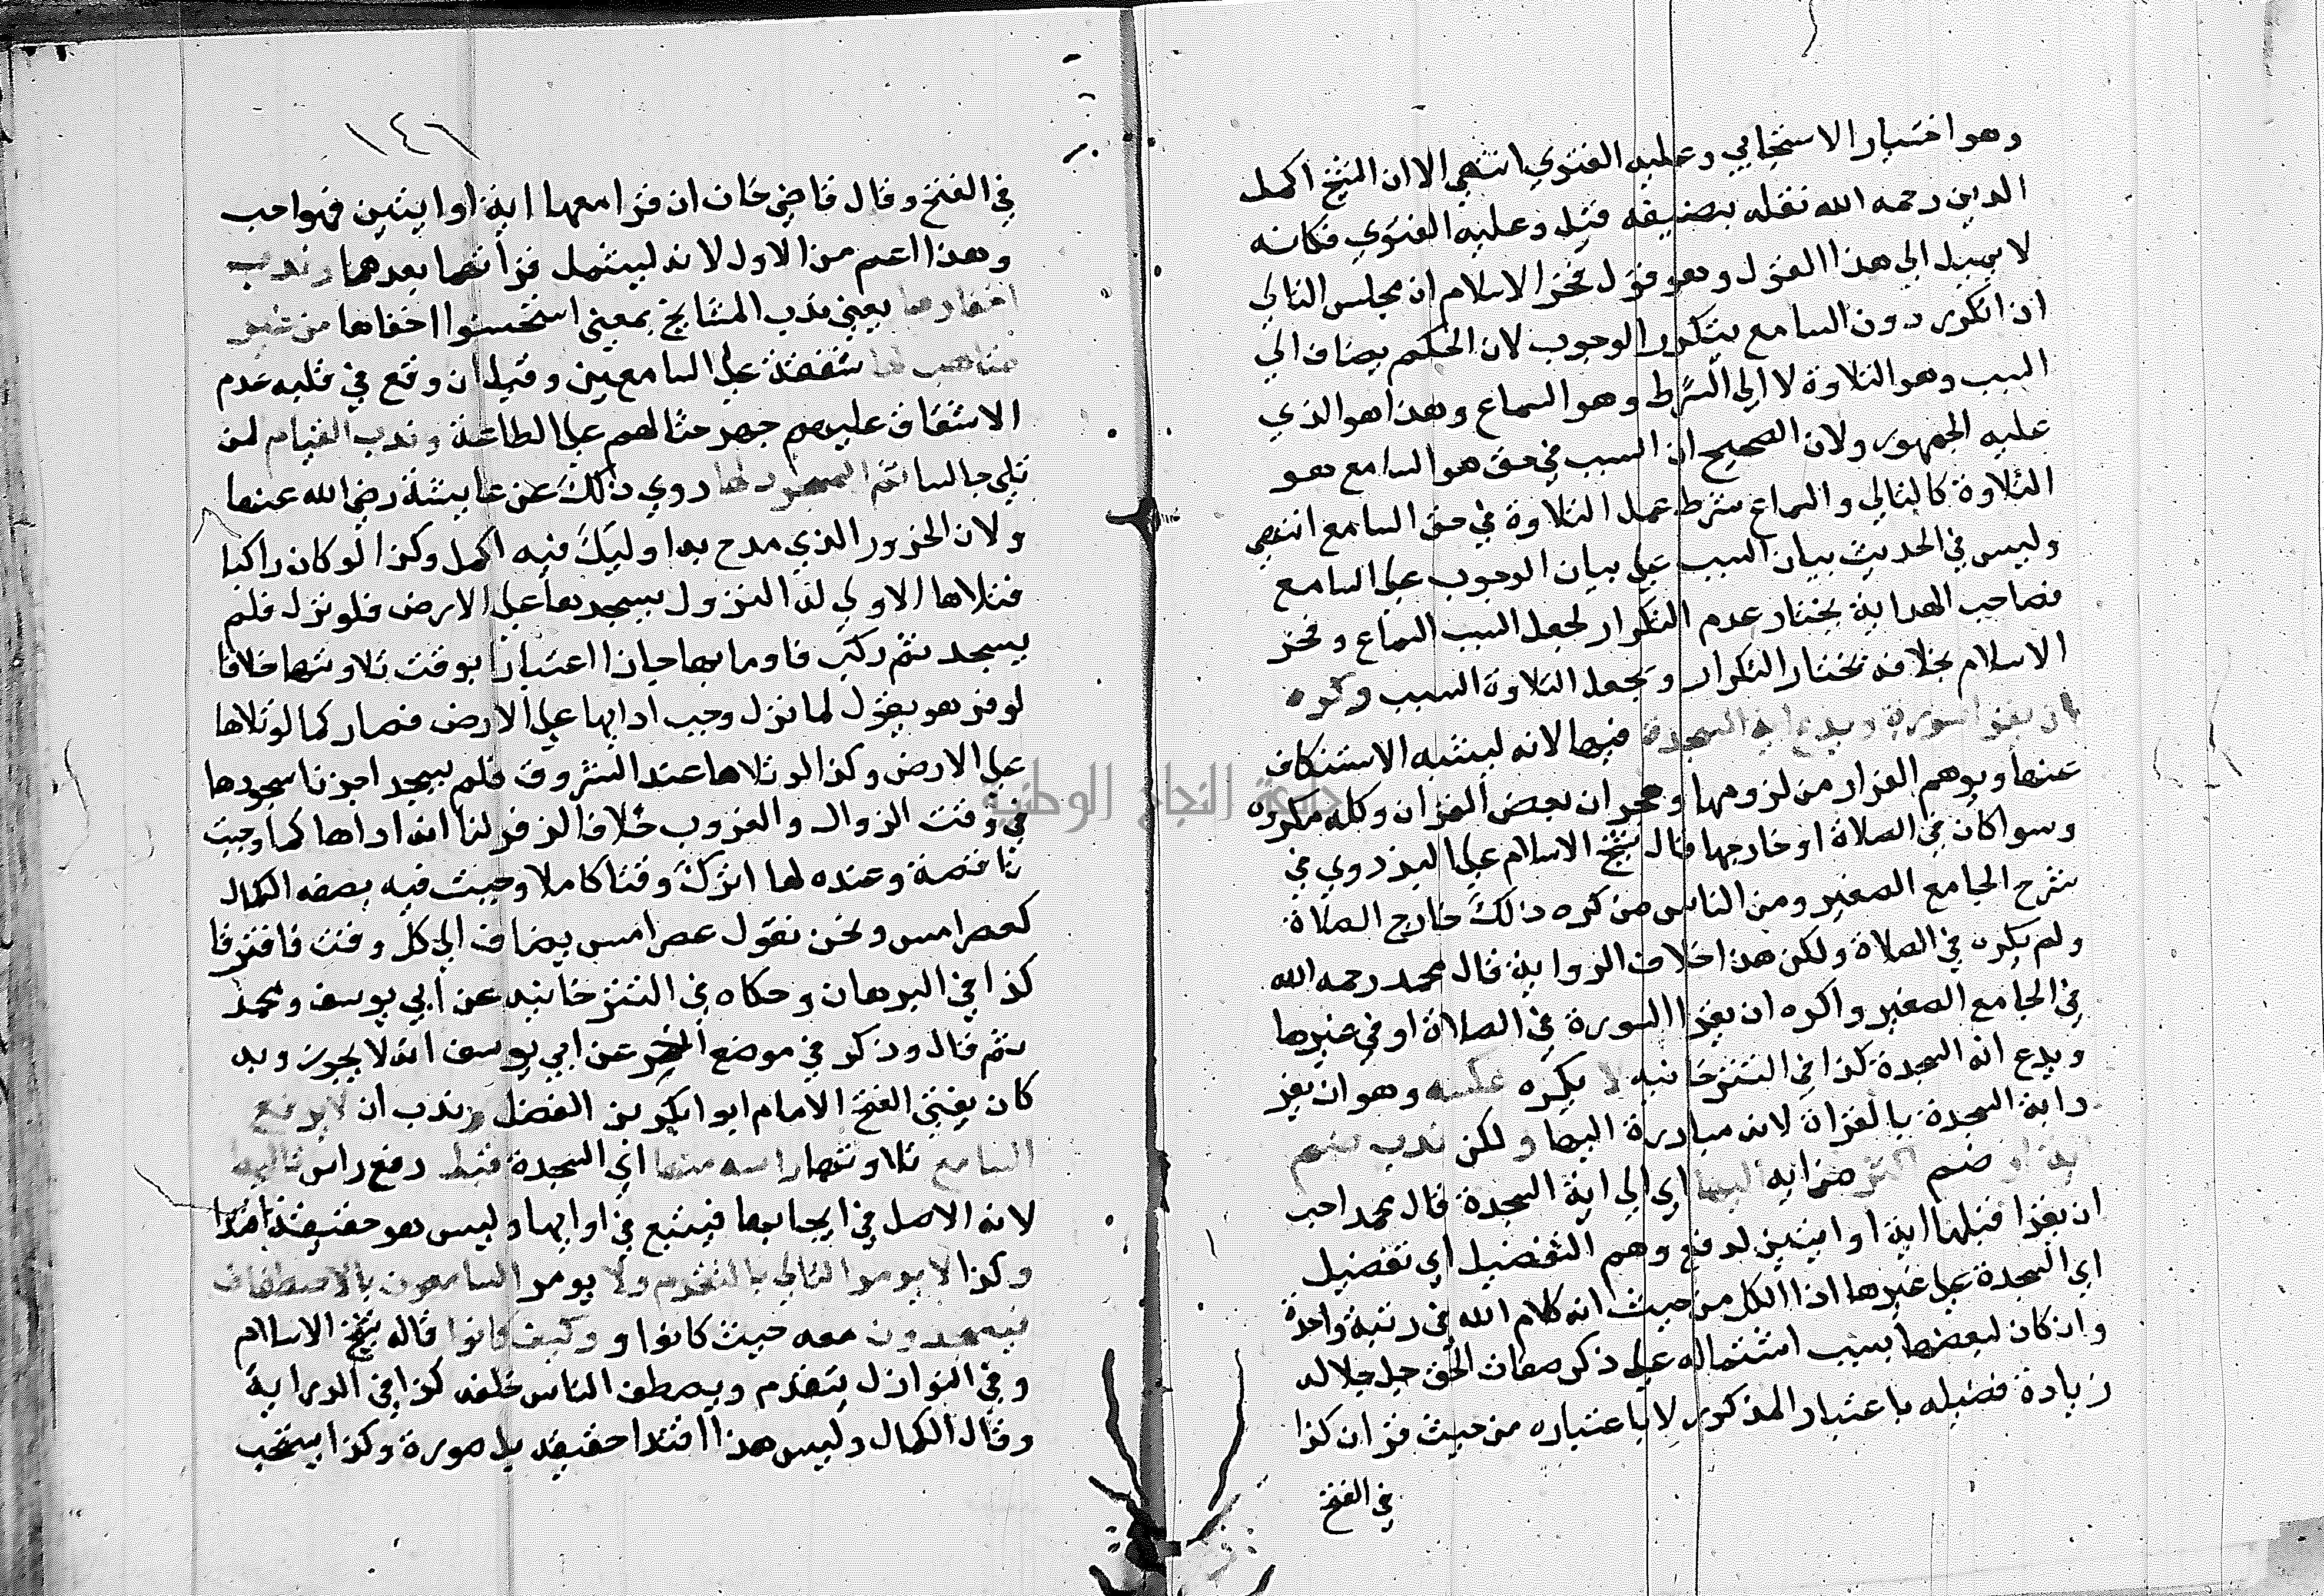 وهو اختيار الاسبيجابي وعليه الفتوي انتهي الا ان الشيخ اكمل
الدين رحمه الله نقله بصيغة قيل وعليه الفتوي فكانه
لا يميل الي هذا القول وهو قول فخر الاسلام ان مجلس التالي
ان تكرر دون السامع يتكرر الوجوب لان الحكم يضاف الي
السبب وهو التلاوة لا الي الشرط وهو السماع وهذا هو الذي
عليه الجمهور ولان الصحيح ان السبب في حق هو السامع هو
التلاوة كالتالي والسماع شرط عمل التلاوة في حق السامع انتهي
وليس في الحديث بيان السبب علي بيان الوجوب علي السامع
فصاحب الهداية يختار عدم التكرار لجعل السبب السماع وفخر
الاسلام بخلافه يختار التكرار ويجعل التلاوة السبب وكره
ان يقرا سورة ويدع اية السجدة فيها لانه ليشبه الاستنكاف
عنها ويوهم الفرار من لزومها وهجران بعض القران وكله مكروه
وسوا كان في الصلاة او خارجها قال شيخ الاسلام علي البزدوي في
شرح الجامع الصغير ومن الناس من كره ذلك خارج الصلاة
ولم يكره في الصلاة ولكن هذا خلاف الرواية قال محمد رحمه الله
في الجامع الصغير واكره ان يقرا السورة في الصلاة او في غيرها
ويدع اية السجدة كذا في التترخانيه لا يكره عكسه وهو ان يقر
داية السجدة بالقران لانه مبادرة اليها ولكن ندب ضم
اية او ضم اكثر من ايه اليها اي الي اية السجدة قال محمد احب
ان يقرا قبلها اية او ايتين لدفع وهم التفضيل اي تفضيل
اي السجدة علي غيرها اذا الكل من حيث انه كلام الله في رتبة واحدة
وان كان لبعضها بسبب اشتماله علي ذكر صفات الحق جل جلاله
زيادة فضيله باعتبار المذكور لا باعتباره من حيث قران كذا
في الفتح
١٤١
في الفتح وقال قاضي خان ان قرا معها اية او ايتين فهو احب
وهذا اعم من الاول لانه ليشمل قرأتها بعدهما وندب
اخفاوها يعني ندب المشايخ بمعني استحسنوا اخفاها من غير
متاهب لها شفقة علي السامعين وقيل ان وقع في قلبه عدم
الاشفاق عليهم جهر حثا لهم علي الطاعة وندب القيام لمن
تلي جالسا ثم السجود لها روي ذلك عن عايشة رضي الله عنها
ولان الخرور الذي مدح به اوليك فيه اكمل وكذا لو كان راكبا
فتلاها الاولي له النزول ليسجدها علي الارض فلو نزل فلم
يسجد ثم ركب فاوما بها جاز اعتبارا بوقت تلاوتها خلافا
لزفر هو يقول لما نزل وجب ادايها علي الارض فصار كما لو تلاها
علي الارض وكذا لو تلاها عند الشروق فلم يسجد اجزنا سجودها
في وقت الزوال والغروب خلافا لزفر لنا انه اداها كما وجبت
ناقصة وعنده لها اترك وقتا كاملا وجبت فيه بصفه الكمال
كعصر امس ونحن نقول عصر امس يضاف الي كل وقت فافترقا
كذا في البرهان وحكاه في التترخانيه عن ابي يوسف ومحمد
ثم قال وذكر في موضع اخر عن ابي يوسف انه لا يجوز وبه
كان يفتي الشيخ الامام ابو ابكر بن الفضل وندب ان لا يرفع
السامع تلاوتها راسه منها اي السجدة قبل رفع راس تاليها
لانه الاصل في ايجابها فيتبع في اوايها وليس هو حقيقة اقتدا
وكذا لا يومر التالي بالتقدم ولا يومر السامعون بالاصطفاف
فيسجدون معه حيث كانوا و وكيف كانوا قاله شيخ الاسلام
وفي النوازل يتقدم ويصطف الناس خلفه كذا في الدراية
وقال الكمال وليس هذا اقتدا حقيقه بل صورة وكذا يستحب
جامعة النجاح الوطنية